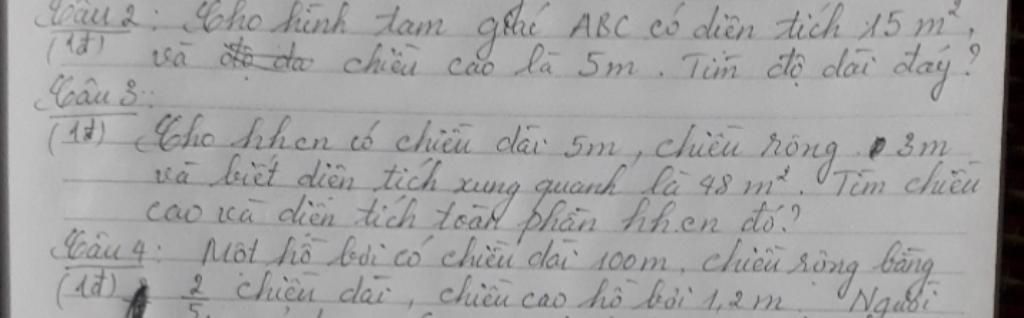 Câu 2: Cho hình tam giác ABC có diện tích 15 m²,
(1đ) và chiều cao là 5m. Tìm độ dài đáy?
Câu 3:
(1đ) Cho hhcn có chiều dài 5m, chiều rộng 3m
và biết diện tích xung quanh là 48 m². Tìm chiều
cao và diện tích toàn phần hhcn đó?
Câu 4: Một hồ bơi có chiều dài 100m, chiều rộng bằng
(1đ) 2/5 chiều dài, chiều cao hồ bơi 1,2m. Người